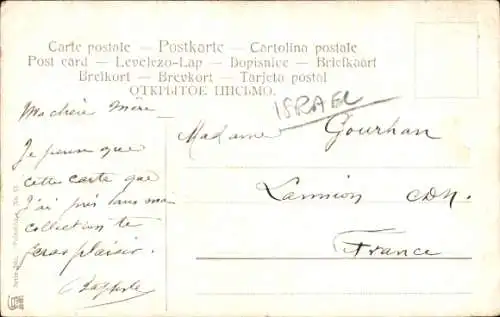 Carte postale — Postkarte — Cartolina postale
Post card — Levelezo-Lap — Dopisnice — Briefkaart
Brefkort — Brevkort — Tarjeta postal
ОТКРЫТОЕ ПИСЬМО.
ISRAEL
Ma chère mère
Je pense que
cette carte que
j'ai pris dans ma
collection te
feras plaisir.
Madame Gourhan
Lannion CDN.
France